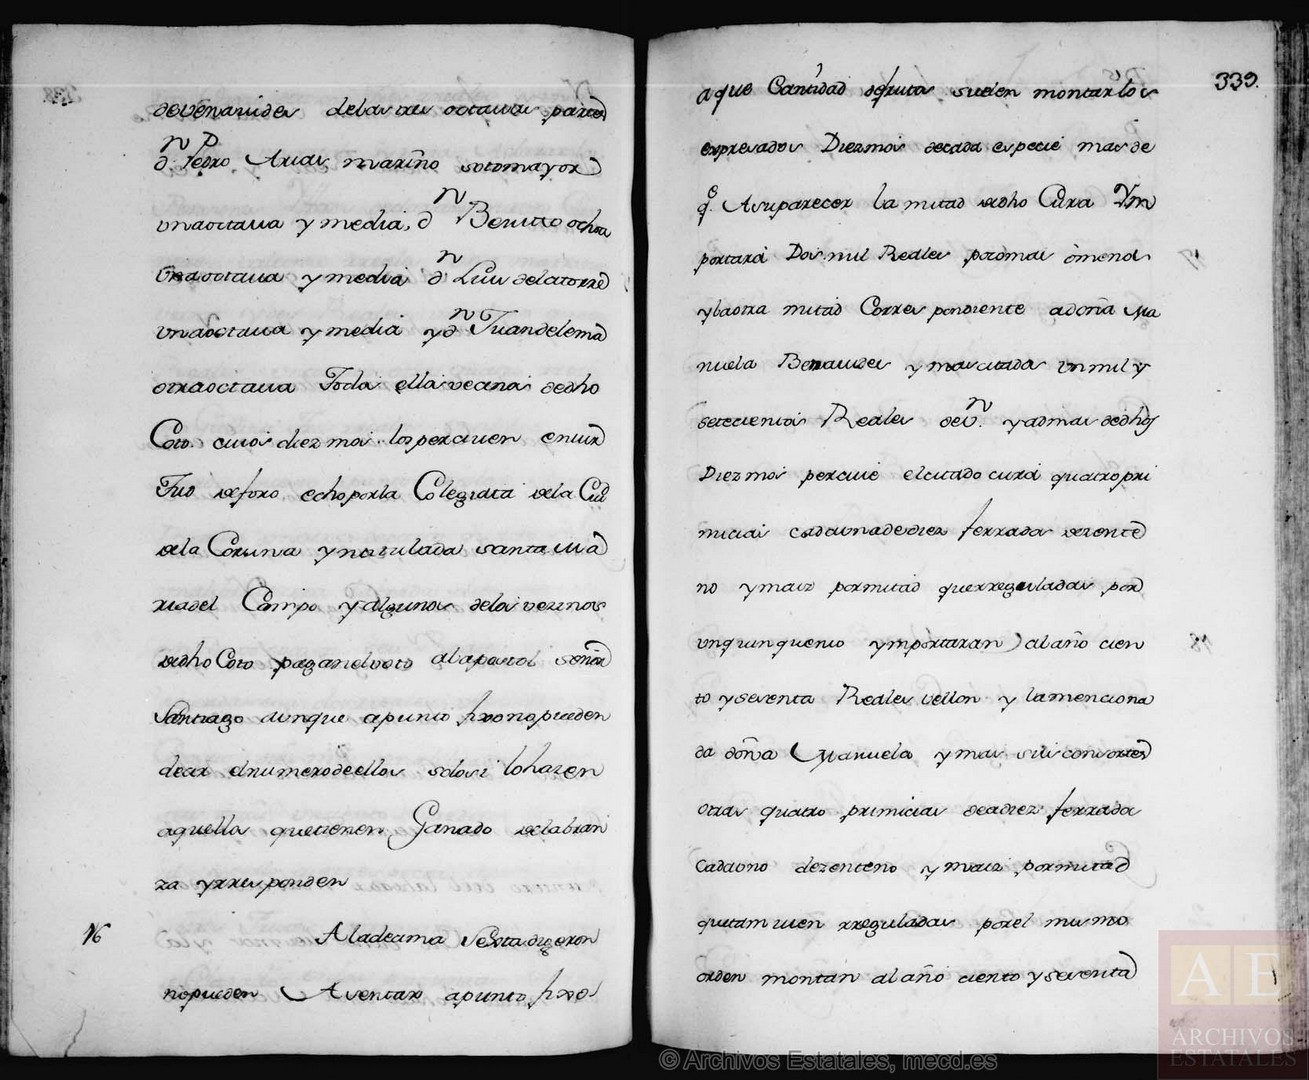 devenavides delastres octavas partes
Dn Pedro Arias mariño sotomayor
vnaoctaua y media, dn Benitto ochoa
vnaoctaua y media dn Luis delatorre
vnaoctaua y media y dn Juandelema
otraoctaua Todas ellas vecinas dedho
Coto. cuios diezmos. los perciuen envir
Tud deforo echoporla Colegiata dela Ciud
dela Coruna ynatulada santa Ma
ria del Campo y algunos delos vezinos
dedho Coto paganelvoto alapostol señor
Santiago aunque apunto fixonopueden
decir elnumerodeellos solosi lohazen
aquellos quetienen Ganado delabran
za yrresponden
16 Aladezima Sexta dijeron
nopueden Asentar apunto fixo
339.
aque Cantidad defrutos suelen montarlos
expresados Diezmos decada especie masde
qe. Asuparecer la mitad dedho Cura Ym
portará Dos mil Reales pocomas ómenos
ylaotra mitad Correspondiente adoña Ma
nuela Benauides y mascitados vnmil y
setecientos Reales deVn. yademas dedhos
Diezmos perciue elcitado cura quatro pri
micias cadaunadediez ferrados dezente
no y maiz pormitad querreguladas por
vnquinquenio ymportaran al año cien
to ysesenta Reales vellon y lamenciona
da doña Manuela y mas sus consortes
otras quatro primicias deadiez ferrados
Cadauno dezenteno y maiz pormitad
quetamuien rreguladas porel mismo
orden montan al año ciento ysesenta
AE
ARCHIVOS
ESTATALES
© Archivos Estatales, mecd.es